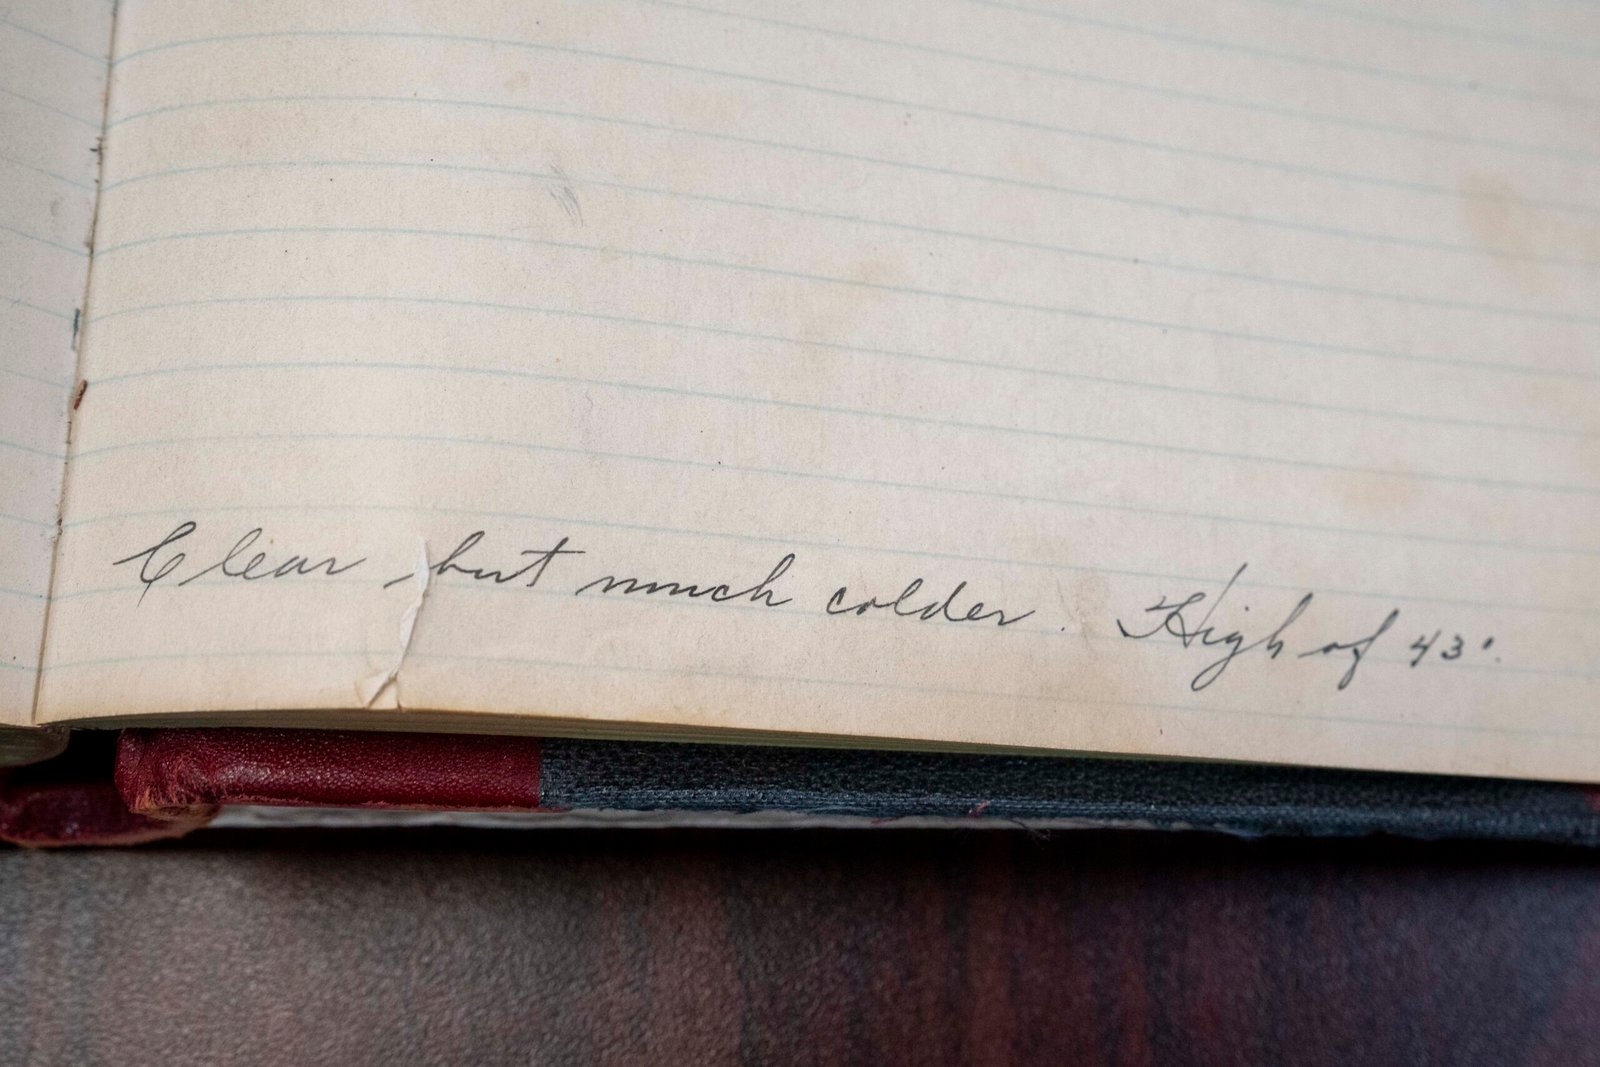 Clear, but much colder. High of 43°.